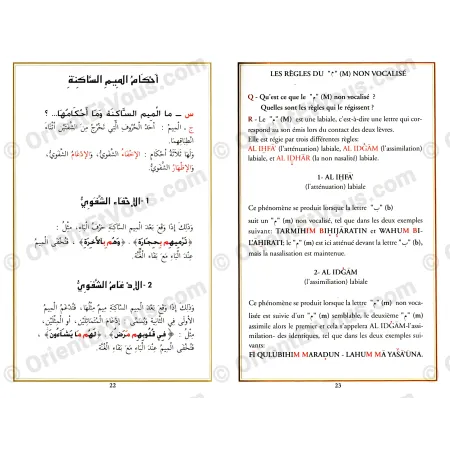 أحكام الميم الساكنة
س ـ ما الميم الساكنة وما أحكامها... ؟
ج ـ الميم : أحد الحروف التي تخرج من الشفتين أثناء
ولها ثلاثة أحكام : الإخفاء الشفوي، والإدغام الشفوي،
والإظهار الشفوي.
1- الإخفاء الشفوي
وذلك إذا وقع بعد الميم الساكنة حرف الباء، مثل :
﴿ترميهم بحجارة﴾، ﴿وهم بالآخرة﴾، فتخفى الميم
عند الباء مع بقاء الغنة.
2- الإدغام الشفوي
وذلك إذا وقع بعد الميم الساكنة ميم مثلها، فتدغم الميم
الأولى في الثانية ويسمى إدغام المتماثلين، أو المثلين.
مثل : ﴿في قلوبهم مرض﴾، ﴿لهم ما يشاءون﴾،
فتخفى الميم عند الباء مع بقاء الغنة.
22
LES RÈGLES DU "م" (M) NON VOCALISÉ
Q - Qu'est ce que le "م" (m) non vocalisé ?
Quelles sont les règles qui le régissent ?
R - Le "م" (M) est une labiale, c'est-à-dire une lettre qui cor-
respond au son émis lors du contact des deux lèvres.
Elle est régie par trois différentes règles:
AL IḤFÂ' (l'atténuation) labiale, AL IDĠÂM (l'assimilation)
labiale, et AL IḌHÂR (la non nasalité) labiale.
1- AL IḤFÂ'
(l'atténuation) labiale
Ce phénomène se produit lorsque la lettre "ب" (b)
suit un "م" (m) non vocalisé, tel que dans les deux exemples
suivant: TARMIHIM BIHIJARATIN et WAHUM BI-
L'ÂHIRATI; le "م" (m) est ici atténué devant la lettre "ب" (b),
mais la nasalisation est maintenue.
2- AL IDĠÂM
(l'assimilation) labiale
Ce phénomène se produit lorsque la lettre "م" (m) non voca-
lisée est suivie d'un "م" (m) semblable, le deuxième "م" (m)
assimile alors le premier et cela s'appellera AL IDĠAM-l'assi-
milation- des identiques, tel que dans les deux exemples sui-
vants:
FÎ QULÛBIHIM MARAḌUN - LAHUM MÂ YAŠÂ'UNA.
23
© OrientAvous.com